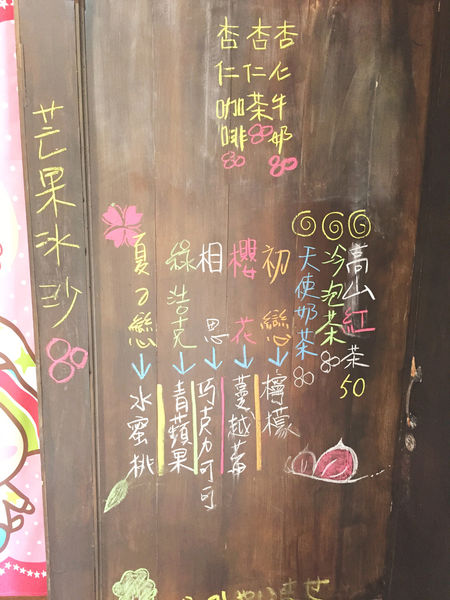 杏仁牛奶 80
杏仁茶 80
杏仁咖啡 80
高山紅茶 50
冷泡茶 80
天使奶茶 80
初戀↓檸檬
櫻花↓蔓越莓
相思↓巧克力可可
綠浩克↓青蘋果
夏の戀↓水蜜桃
芒果冰沙 80